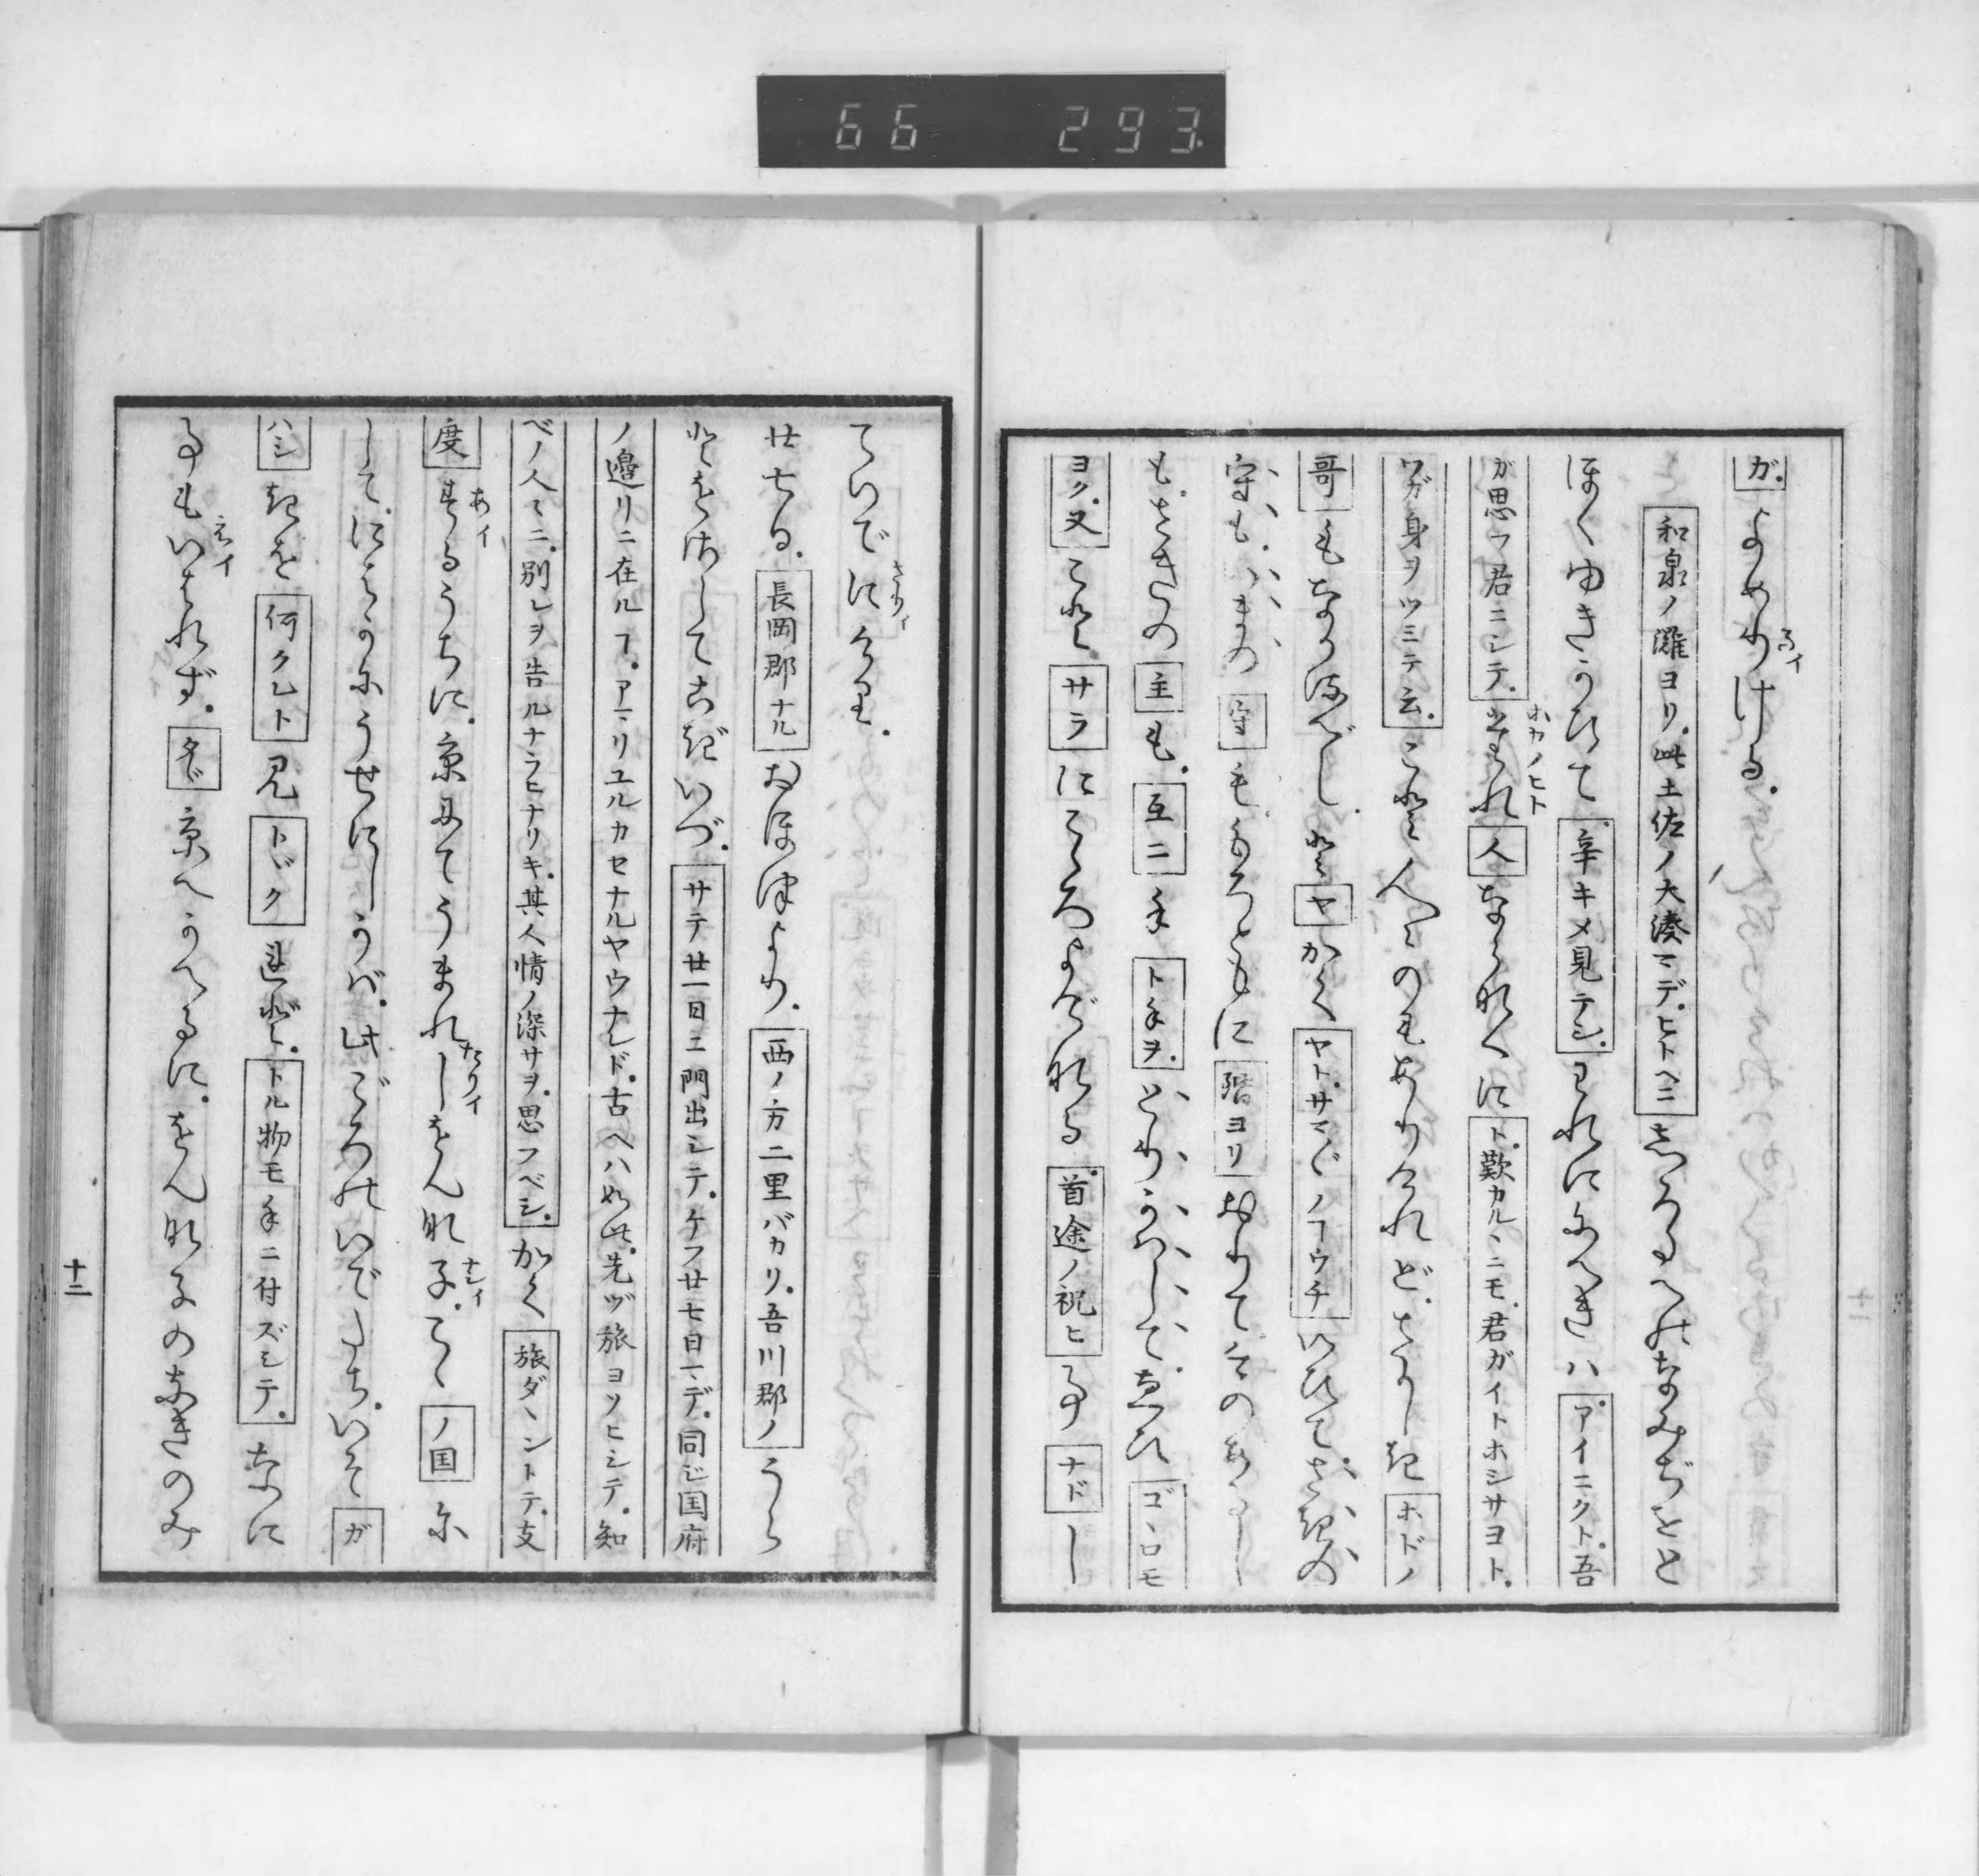 66 293
ガ。よめりける。
るイ
和泉ノ灘ヨリ。此土佐ノ大湊マデ。ヒトヘニ しろたへのなみぢをと
ほくゆきかひて 辛キメ見テシ。われににべきハ アイニクト。吾
ガ思フ君ニシテ。たれ人ならなくに ト。歎カルヽニモ。君ガイトホシサヨト。
ホカノヒト
ワガ身ヲツミテ云。こと人〱のもありけれど。さかしき ホドノ
哥 もなかるべし。とヤかく ヤト。サマ〲ノコウチ いひて。さきの
守も。いまの 守 も。もろともに 階ヨリ おりて。そのあるじ
も。さきの 主 も。互ニ 手 ト手ヲ。とりかはして。ゑひ ゴヽロモ
ヨク。又 こと。サラ にこころよげなる 首途ノ祝ヒ 事 ナド し
ていでにけり。
さりイ
廿七日。長岡郡ナル おほ津より。西ノ方二里バカリ。吾川郡ノ うら
とをさしてこぎいづ。サテ廿一日ニ門出シテ。ケフ廿七日マデ。同ジ国府
ノ邊リニ在ルコト。アマリユルカセナルヤウナレド。古ヘハ如此。先ヅ旅ヨソヒシテ。知
ベノ人〻ニ。別レヲ告ルナラヒナリキ。其人情ノ深サヲ。思フベシ。かく 旅ダヽントテ。支
度 するうちに。京にてうまれしをんな子。こゝ ノ国 に
あイ
たりイ
ナシイ
して。にはかにうせにしかバ。此ごろのいでたち。いそ ガ
ハシ きを 何クレト 見 トバク れど。トル物モ手ニ付ズシテ。なに
事もいはれず。タヾ 京へかへるに。をんな子のなきのみ
えイ
十二